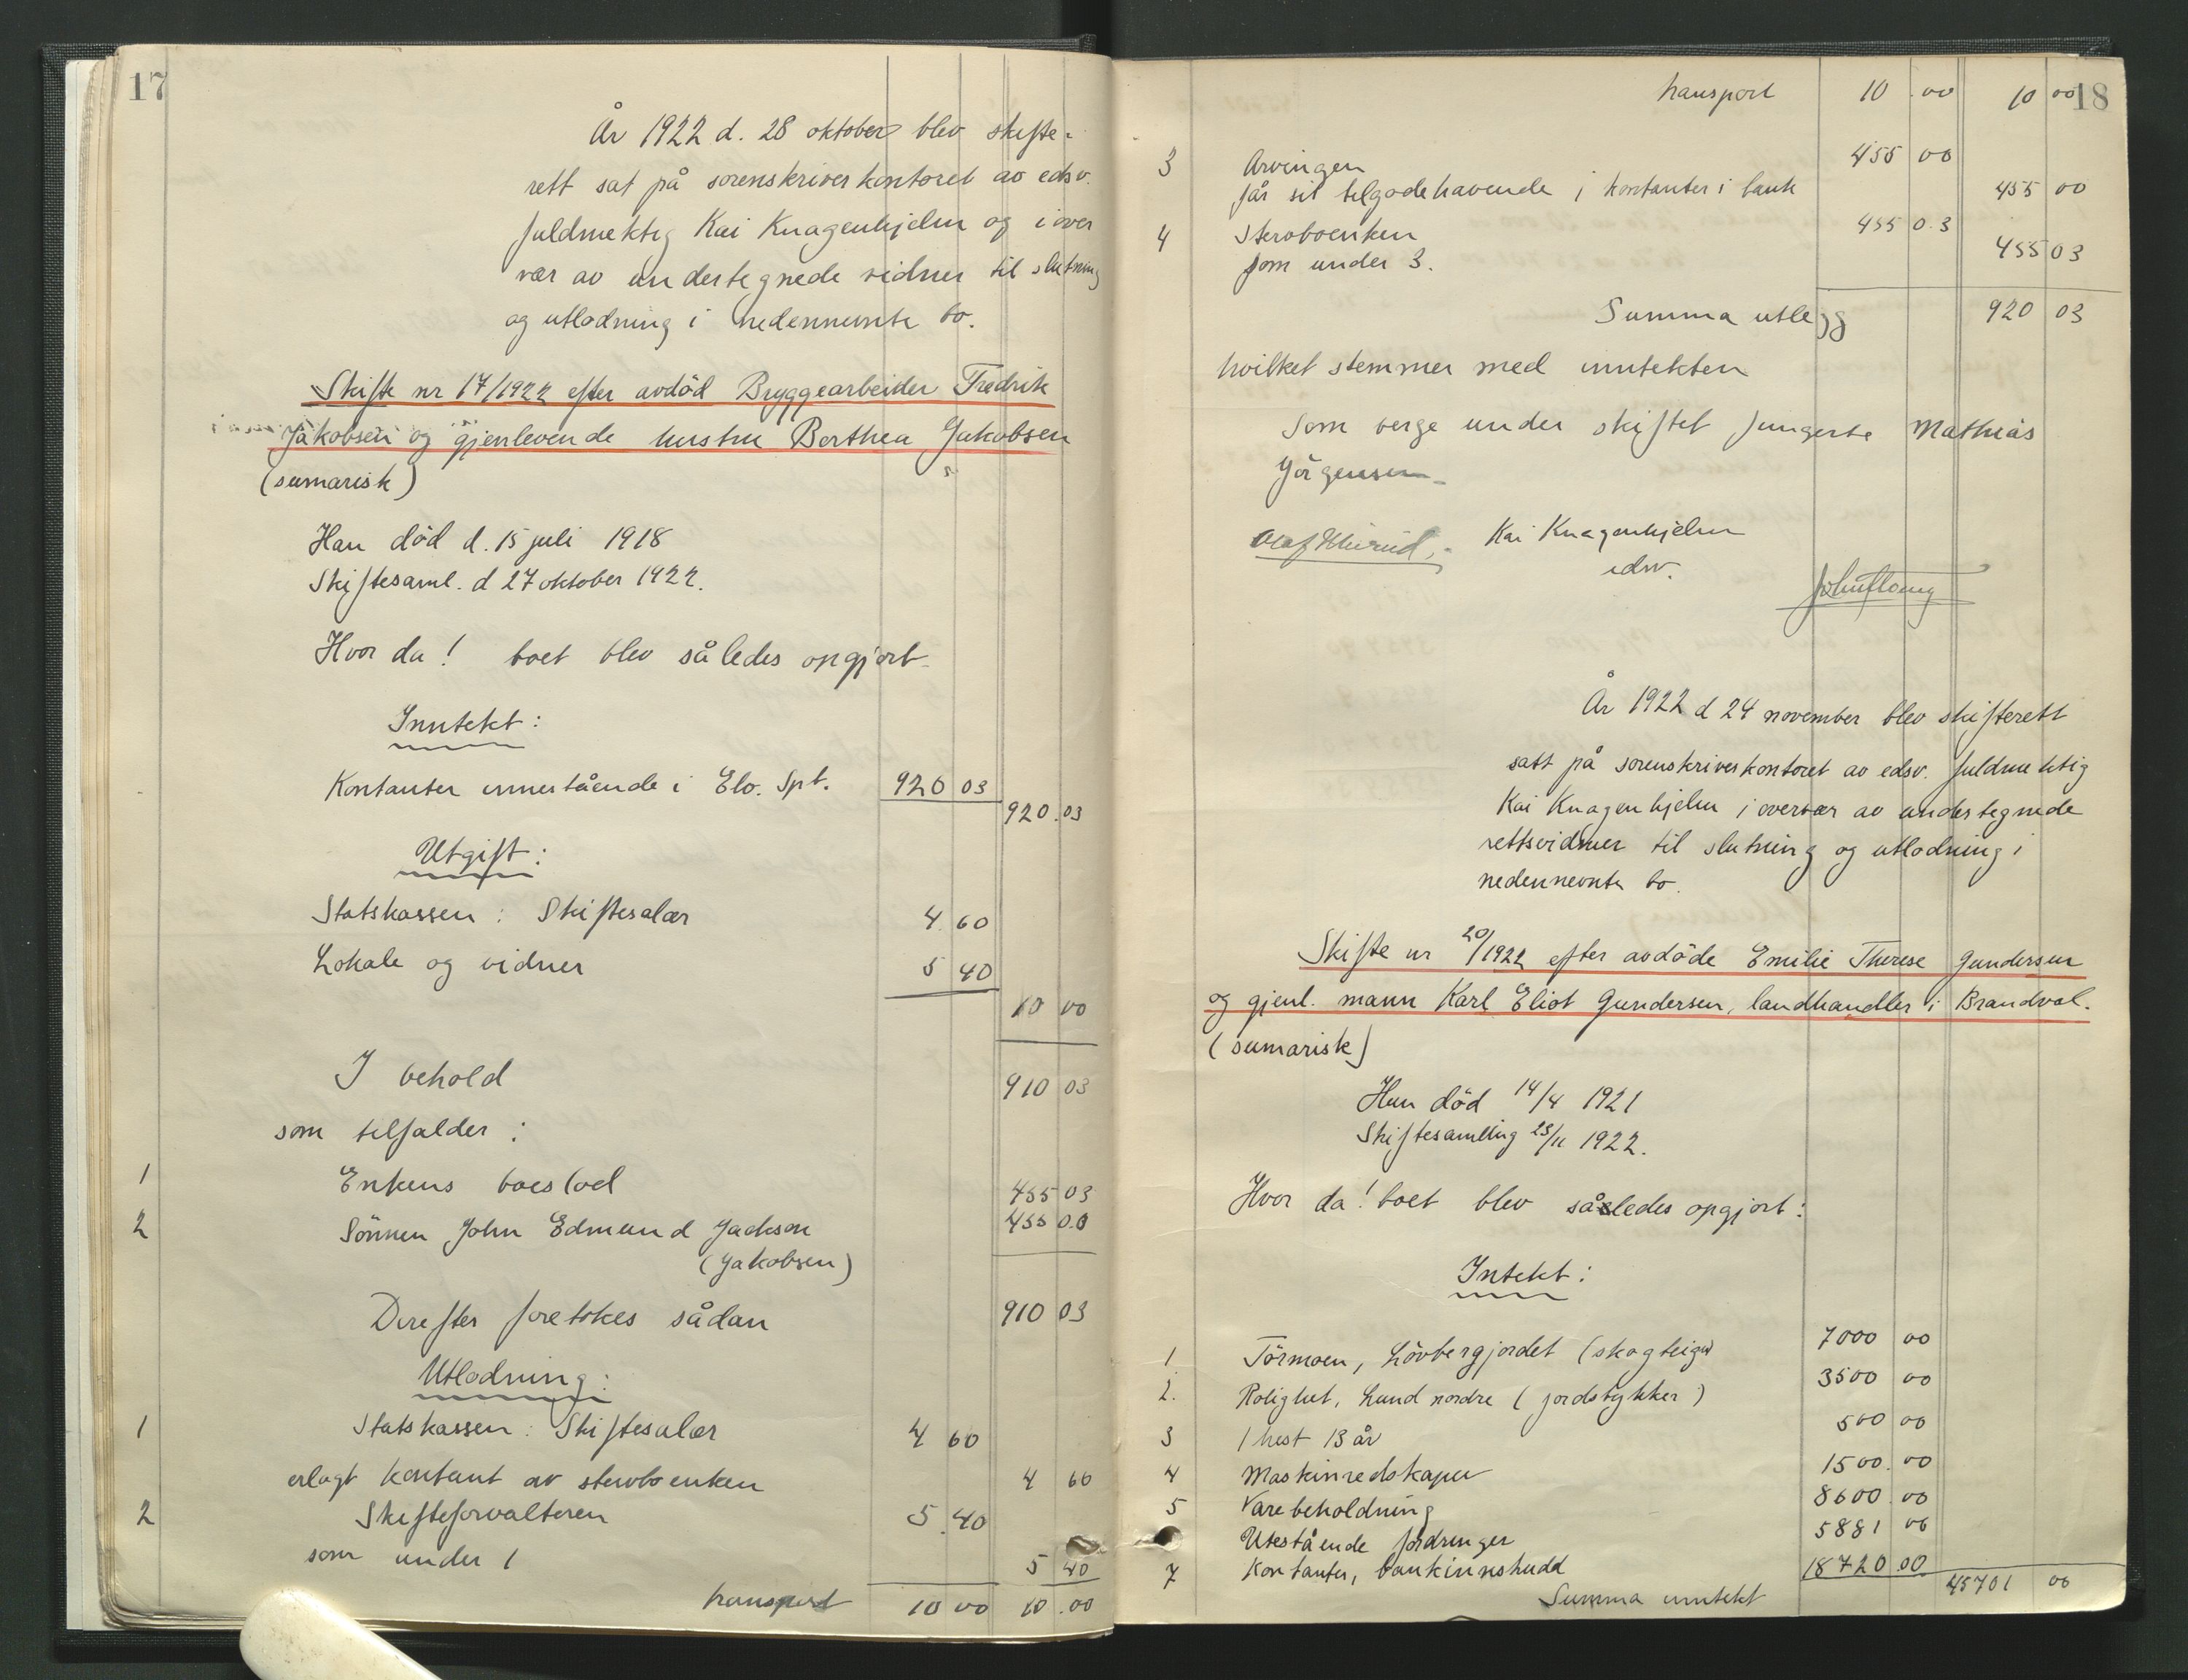 17
År 1922 d. 28 oktober blev skifte-
rett sat på sorenskriverkontoret av edsv.
fuldmektig Kai Knagenhjelm og i over
vær av undertegnede vidner til slutning
og utlodning i nedennevnte bo.
Skifte nr 17/1922 efter avdöd Bryggearbeider Fredrik
Jakobsen og gjenlevende hustru Berthea Jakobsen
(sumarisk)
Han död d. 15 juli 1918
Skiftesaml. d 27 oktober 1922.
Hvor da! boet blev således opgjort
Inntekt:
Kontanter innestående i Elv. Spb. 920 03
920.03
Utgift:
Statskassen: Skiftesalær 4 60
Lokale og vidner 5 40
10 00
I behold 910 03
som tilfalder:
1 Enkens boeslod 455 03
2 Sönnen John Edmund Jackson 455 00
(Jakobsen)
Derefter foretokes sådan 910 03
Utlodning:
1 Statskassen: Skiftesalær 4 60
erlagt kontant av stervboenken 4 60
2 Skifteforvalteren 5.40
som under 1 5 40
transport 10 00 10.00
18
transport 10.00 10 00
3 Arvingen 455 00
får sit tilgodehavende i kontanter i bank 455 00
4 Stervboenken 455 03
som under 3. 455 03
Summa utlegg 920 03
hvilket stemmer med inntekten
Som verge under skiftet fungerte Mathias
Jörgensen
Kai Knagenhjelm
edsv.
År 1922 d 24 november blev skifterett
satt på sorenskriverkontoret av edsv. fuldmektig
Kai Knagenhjelm i overvær av undertegnede
rettsvidner til slutning og utlodning i
nedennevnte bo.
Skifte nr 20/1922 efter avdöde Emilie Therese Gundersen
og gjenl. mann Karl Eliot Gundersen, landhandler i Brandval.
(sumarisk)
Hun död 14/4 1921
Skiftesamling 23/11 1922.
Hvor da! boet blev således opgjort:
Intekt:
1 Törmoen, Lövbergjordet (skogteiger) 7000 00
2. Rolighet, Lund nordre (jordstykker) 3500 00
3 1 hest 13 år 500 00
4 Maskinredskaper 1500.00
5 Varebeholdning 8600.00
Utestående fordringer 5881 00
7 Kontanter, bankinnskudd 18720.00
Summa inntekt 45701 00